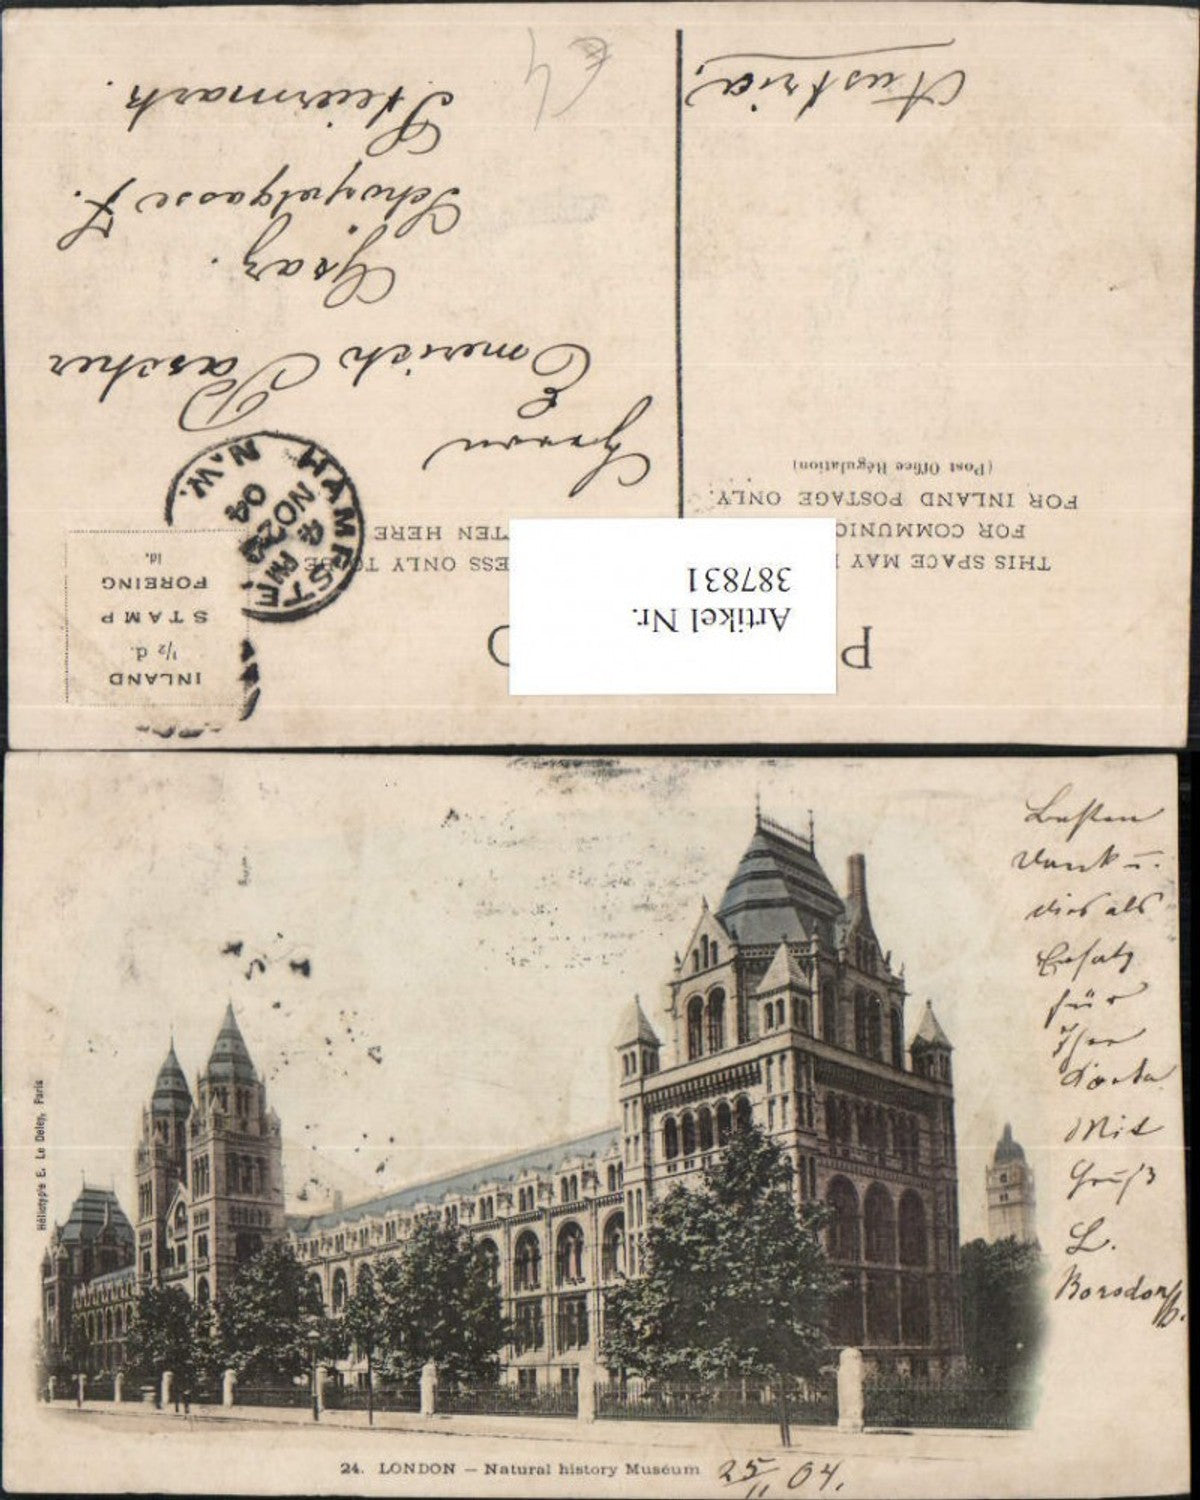 P C
THIS SPACE MAY
FOR COMMUNIC
FOR INLAND POSTAGE ONLY.
(Post Office Régulation)
ESS ONLY TO BE
TEN HERE
INLAND
½ d.
STAMP
FOREING
1d.
HAMPSTEAD
N.W.
NO 25
04
Artikel Nr.
387831
Herrn
Emerich Pascher
Graz.
Schögelgasse 7.
Steiermark.
Austria.
Besten
Dank u.
dies als
Ersatz
für
Ihre
Karte
Mit
Gruß
L.
Borsdorff.
Héliotypie E. Le Deley, Paris
24. LONDON – Natural history Muséum
25/11 04.